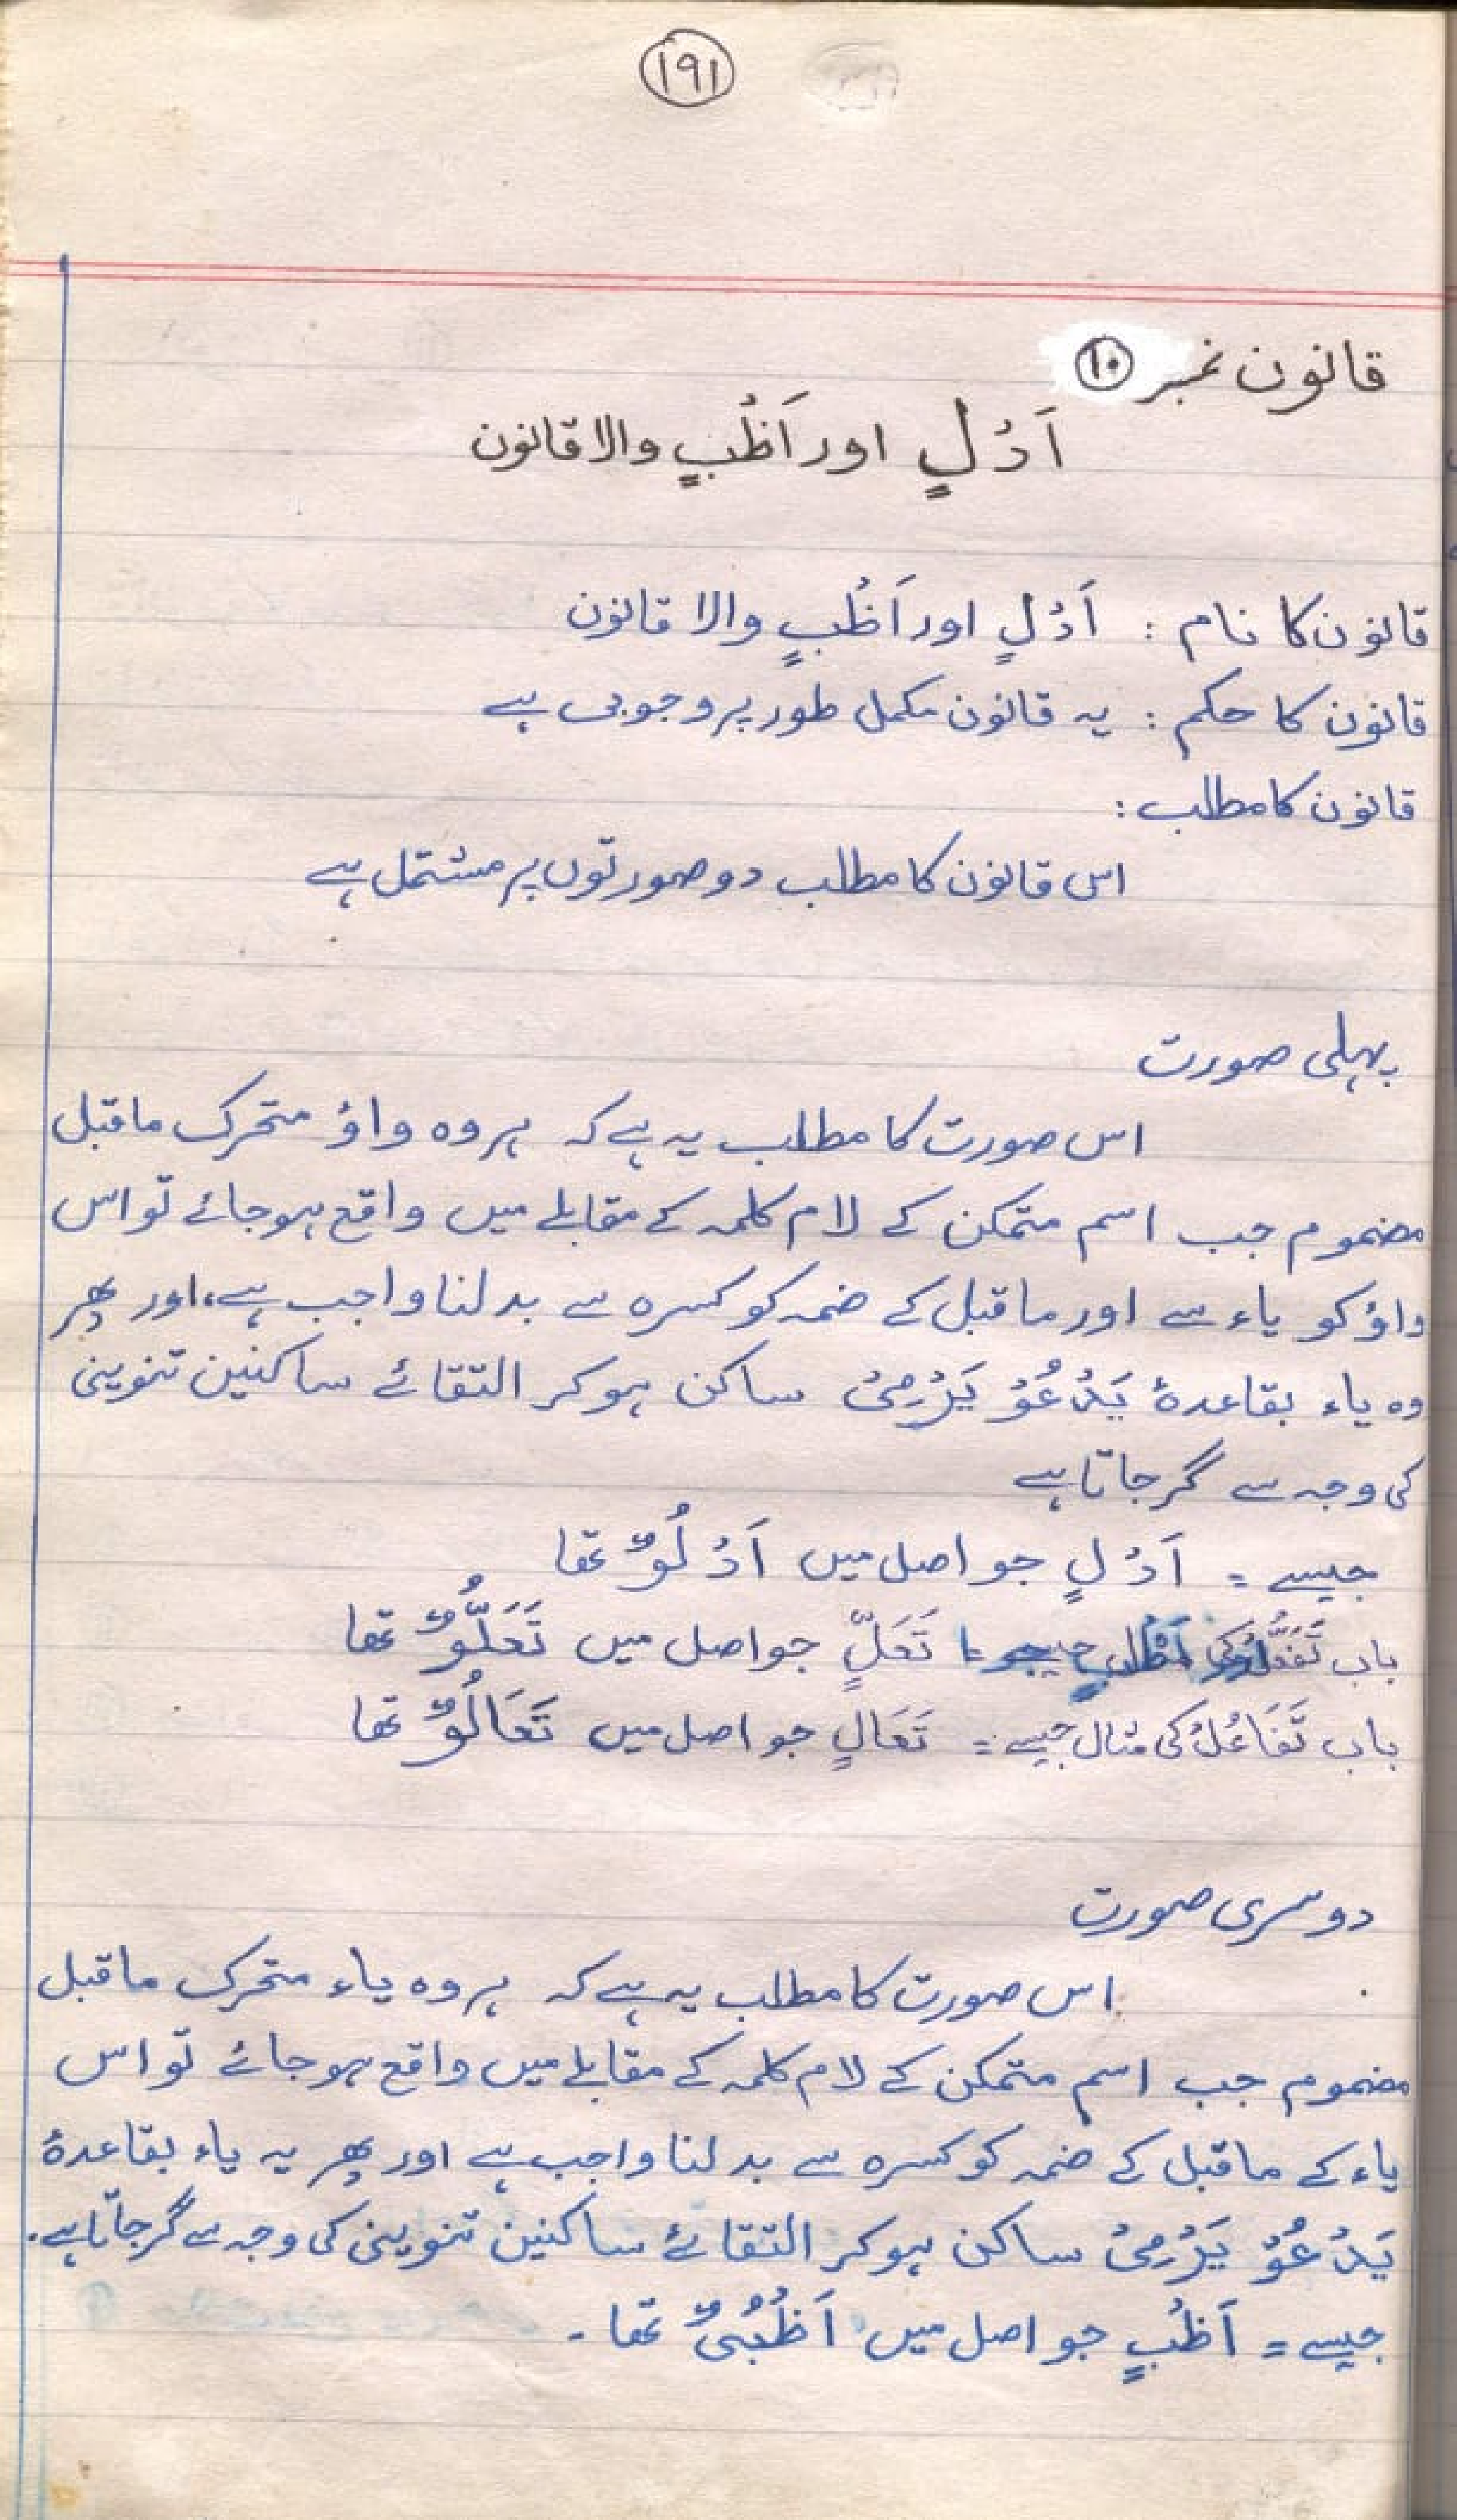 ۱۹۱
قانون نمبر ۱۰
اَدْلٍ اور اَظْبٍ والا قانون
قانون کا نام : اَدْلٍ اور اَظْبٍ والا قانون
قانون کا حکم : یہ قانون مکمل طور پر وجوبی ہے
قانون کا مطلب :
اس قانون کا مطلب دو صورتوں پر مشتمل ہے
پہلی صورت
اس صورت کا مطلب یہ ہے کہ ہر وہ واؤ متحرک ماقبل
مضموم جب اسم متمکن کے لام کلمہ کے مقابلے میں واقع ہوجائے تو اس
واؤ کو یاء سے اور ماقبل کے ضمہ کو کسرہ سے بدلنا واجب ہے، اور پھر
وہ یاء بقاعدۂ یَدْعُوْ یَرْمِیْ ساکن ہوکر التقائے ساکنین تنوینی
کی وجہ سے گرجاتا ہے
جیسے = اَدْلٍ جو اصل میں اَدْلُوٌ تھا
باب تَفَعُّلْ کی جیسے = تَعَلٍّ جو اصل میں تَعَلُّوٌ تھا
باب تَفَاعُلْ کی مثال جیسے = تَعَالٍ جو اصل میں تَعَالُوٌ تھا
دوسری صورت
اس صورت کا مطلب یہ ہے کہ ہر وہ یاء متحرک ماقبل
مضموم جب اسم متمکن کے لام کلمہ کے مقابلے میں واقع ہوجائے تو اس
یاء کے ماقبل کے ضمہ کو کسرہ سے بدلنا واجب ہے اور پھر یہ یاء بقاعدۂ
یَدْعُوْ یَرْمِیْ ساکن ہوکر التقائے ساکنین تنوینی کی وجہ سے گرجاتا ہے۔
جیسے = اَظْبٍ جو اصل میں اَظْبُیٌ تھا ۔